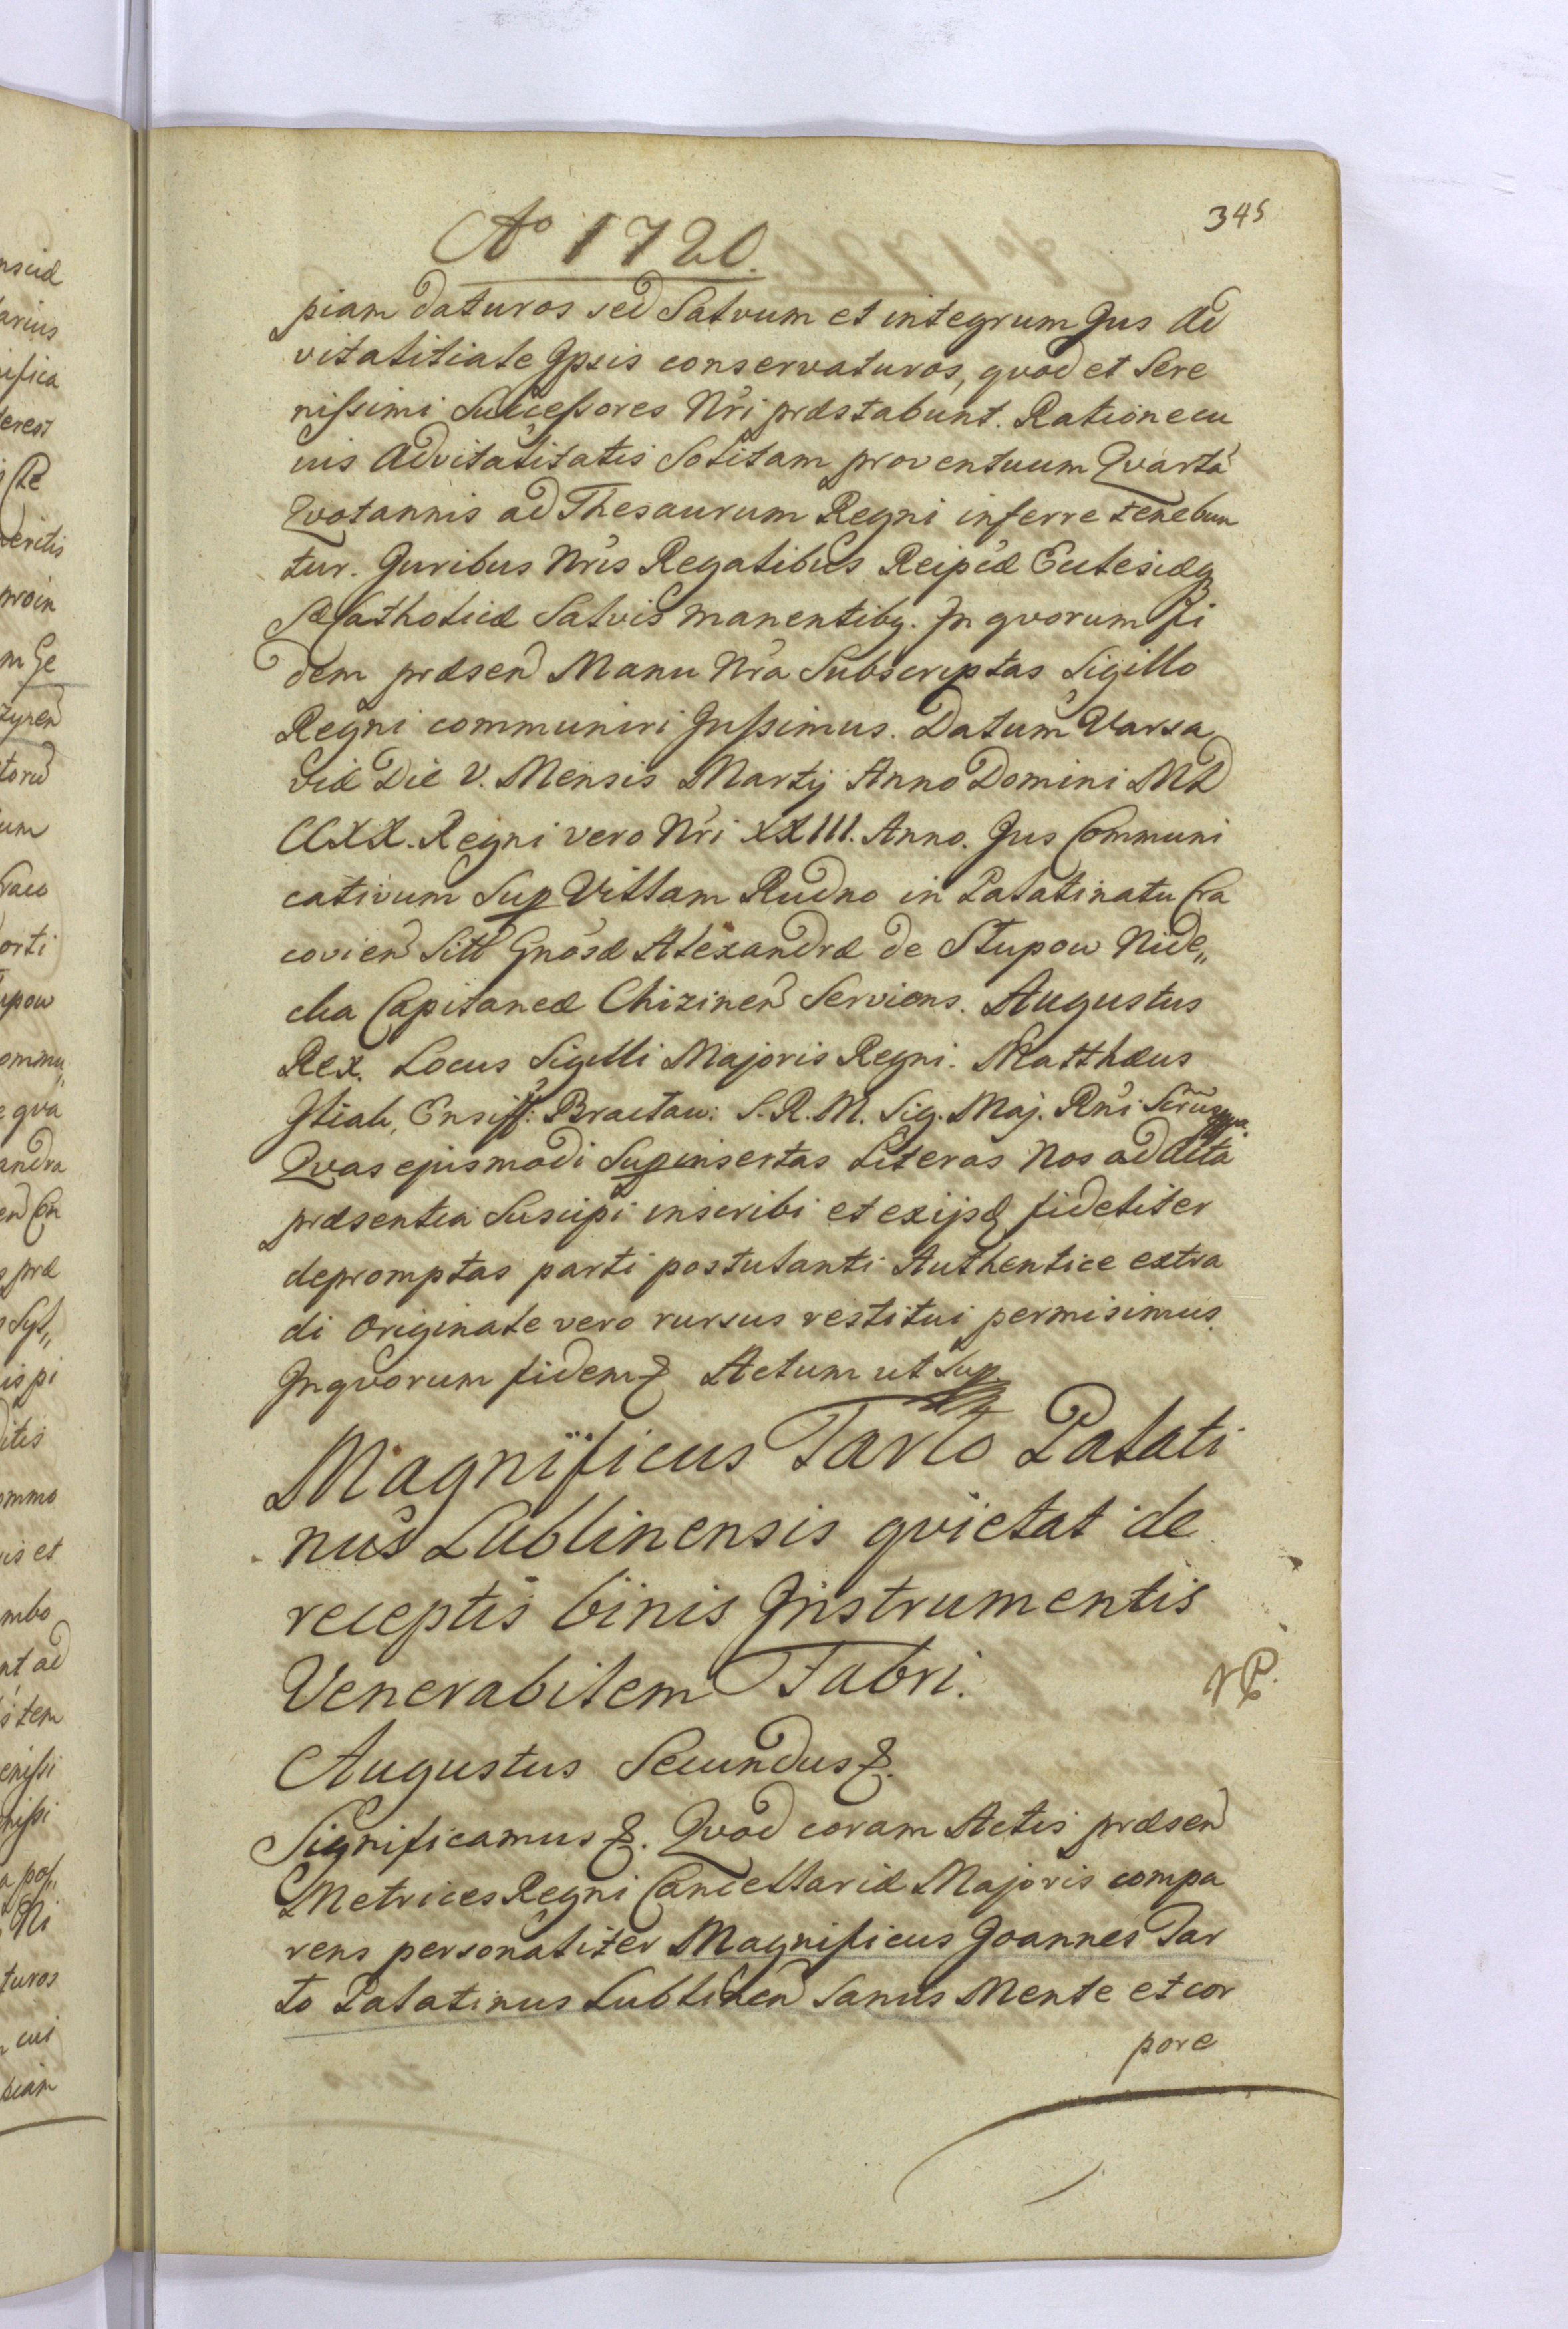 345
Aº 1720.
piam daturos sed Salvum et integrum Jus Ad
vitalitiale Ipsis conservaturos, qvod et Sere
nissimi Successores Nri præstabunt. Ratione cu
ius Advitalitatis Solitam proventuum Qvartã
Qvotannis ad Thesaurum Regni inferre tenebun
tur. Juribus Nris Regalibus Reipcæ Ecclesiæq
Sæ Catholicæ Salvis manentibq. In qvorum fi
dem præsen Manu Nra Subscriptas Sigillo
Regni communiri Jussimus. Datum Varsa
viæ Die V. Mensis Martij Anno Domini MD
CCXX. Regni vero Nri XXIII. Anno. Jus Communi
cativum Sup Villam Rudno in Palatinatu Cra
covien Sitt Gnosæ Alexandræ de Stupow Nide„
cka Capitaneæ Chizinen Serviens. Augustus
Rex. Locus Sigilli Majoris Regni. Matthæus
Ensiff: Bractaw: S. R. M. Sig. Maj. Rni
Qvas ejusmodi Supinsertas Literas Nos ad acta
præsentia Suscipi inscribi et exijsq fideliter
depromptas parti postulanti Authentice extra
di Originale vero rursus restitui permisimus.
In qvorum fidem & Actum ut Sup.
Magnificus Tarło Palati
nus Lublinensis qvietat de
receptis binis Instrumentis
Venerabilem Fabri.
NP.
Augustus Secundus &.
Significamus &. Qvod coram Actis præsen
Metrices Regni Cancellariæ Majoris compa
rens personaliter Magnificus Joannes Tar
ło Palatinus Lublinen Sanus Mente et cor
pore